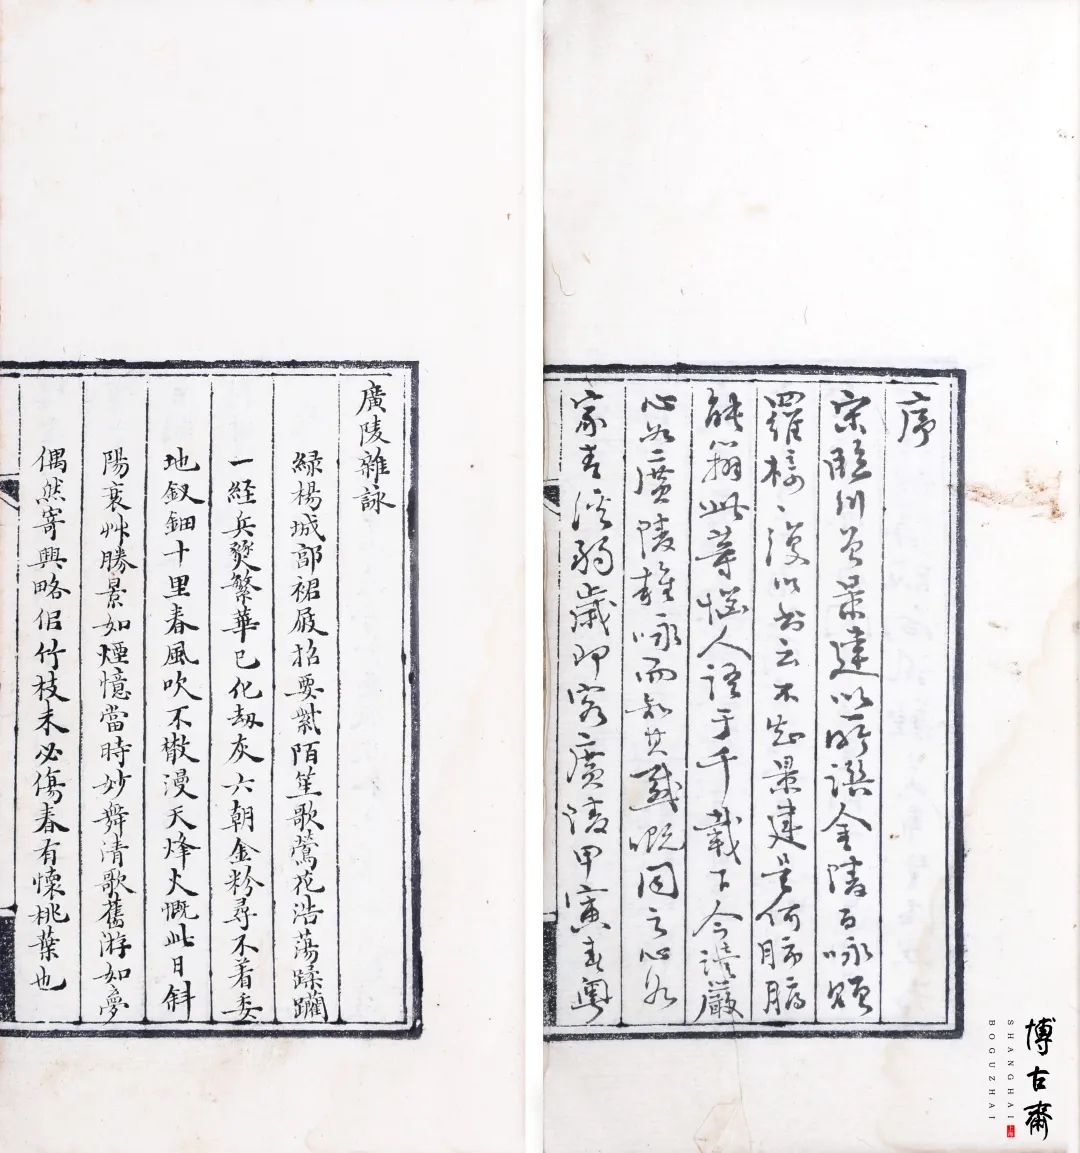 序
宋臨川曾景建以所譔金陵百咏題
羅椅椅復以書云不知景建是何肺腑
能辦此等惱人語于千載下今讀嚴
心益廣陵雜咏而知其感慨同之心益
家青溪弱歲即客廣陵甲寅春粵
廣陵雜詠
綠楊城郭裙屐招要紫陌笙歌鶯花浩蕩蹂躪
一經兵燹繁華已化劫灰六朝金粉尋不着委
地釵鈿十里春風吹不散漫天烽火慨此日斜
陽衰艸勝景如煙憶當時妙舞清歌舊游如夢
偶然寄興略侶竹枝未必傷春有懷桃葉也
博古齋
SHANGHAI
BOGUZHAI